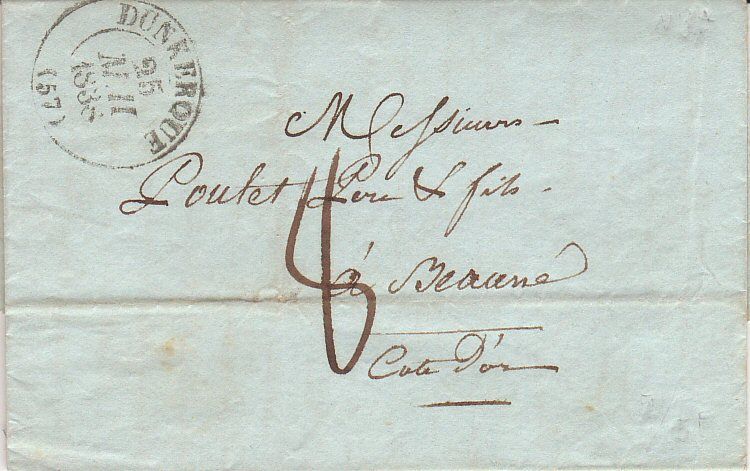 DUNKERQUE
25
MAI
1838
(57)
Messieurs
Poulet Pere & fils
à Beaune
Cote D'or